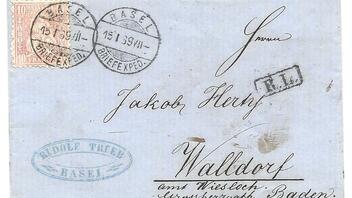 10
BASEL
15 I 69 VII-
BRIEFEXPED.
BASEL
15 I 69 VII-
BRIEFEXPED.
Herrn
R.L.
Jakob Herty
RUDOLF TRUEB
BASEL
Walldorf
amt Wiesloch
Grossherzogth. Baden